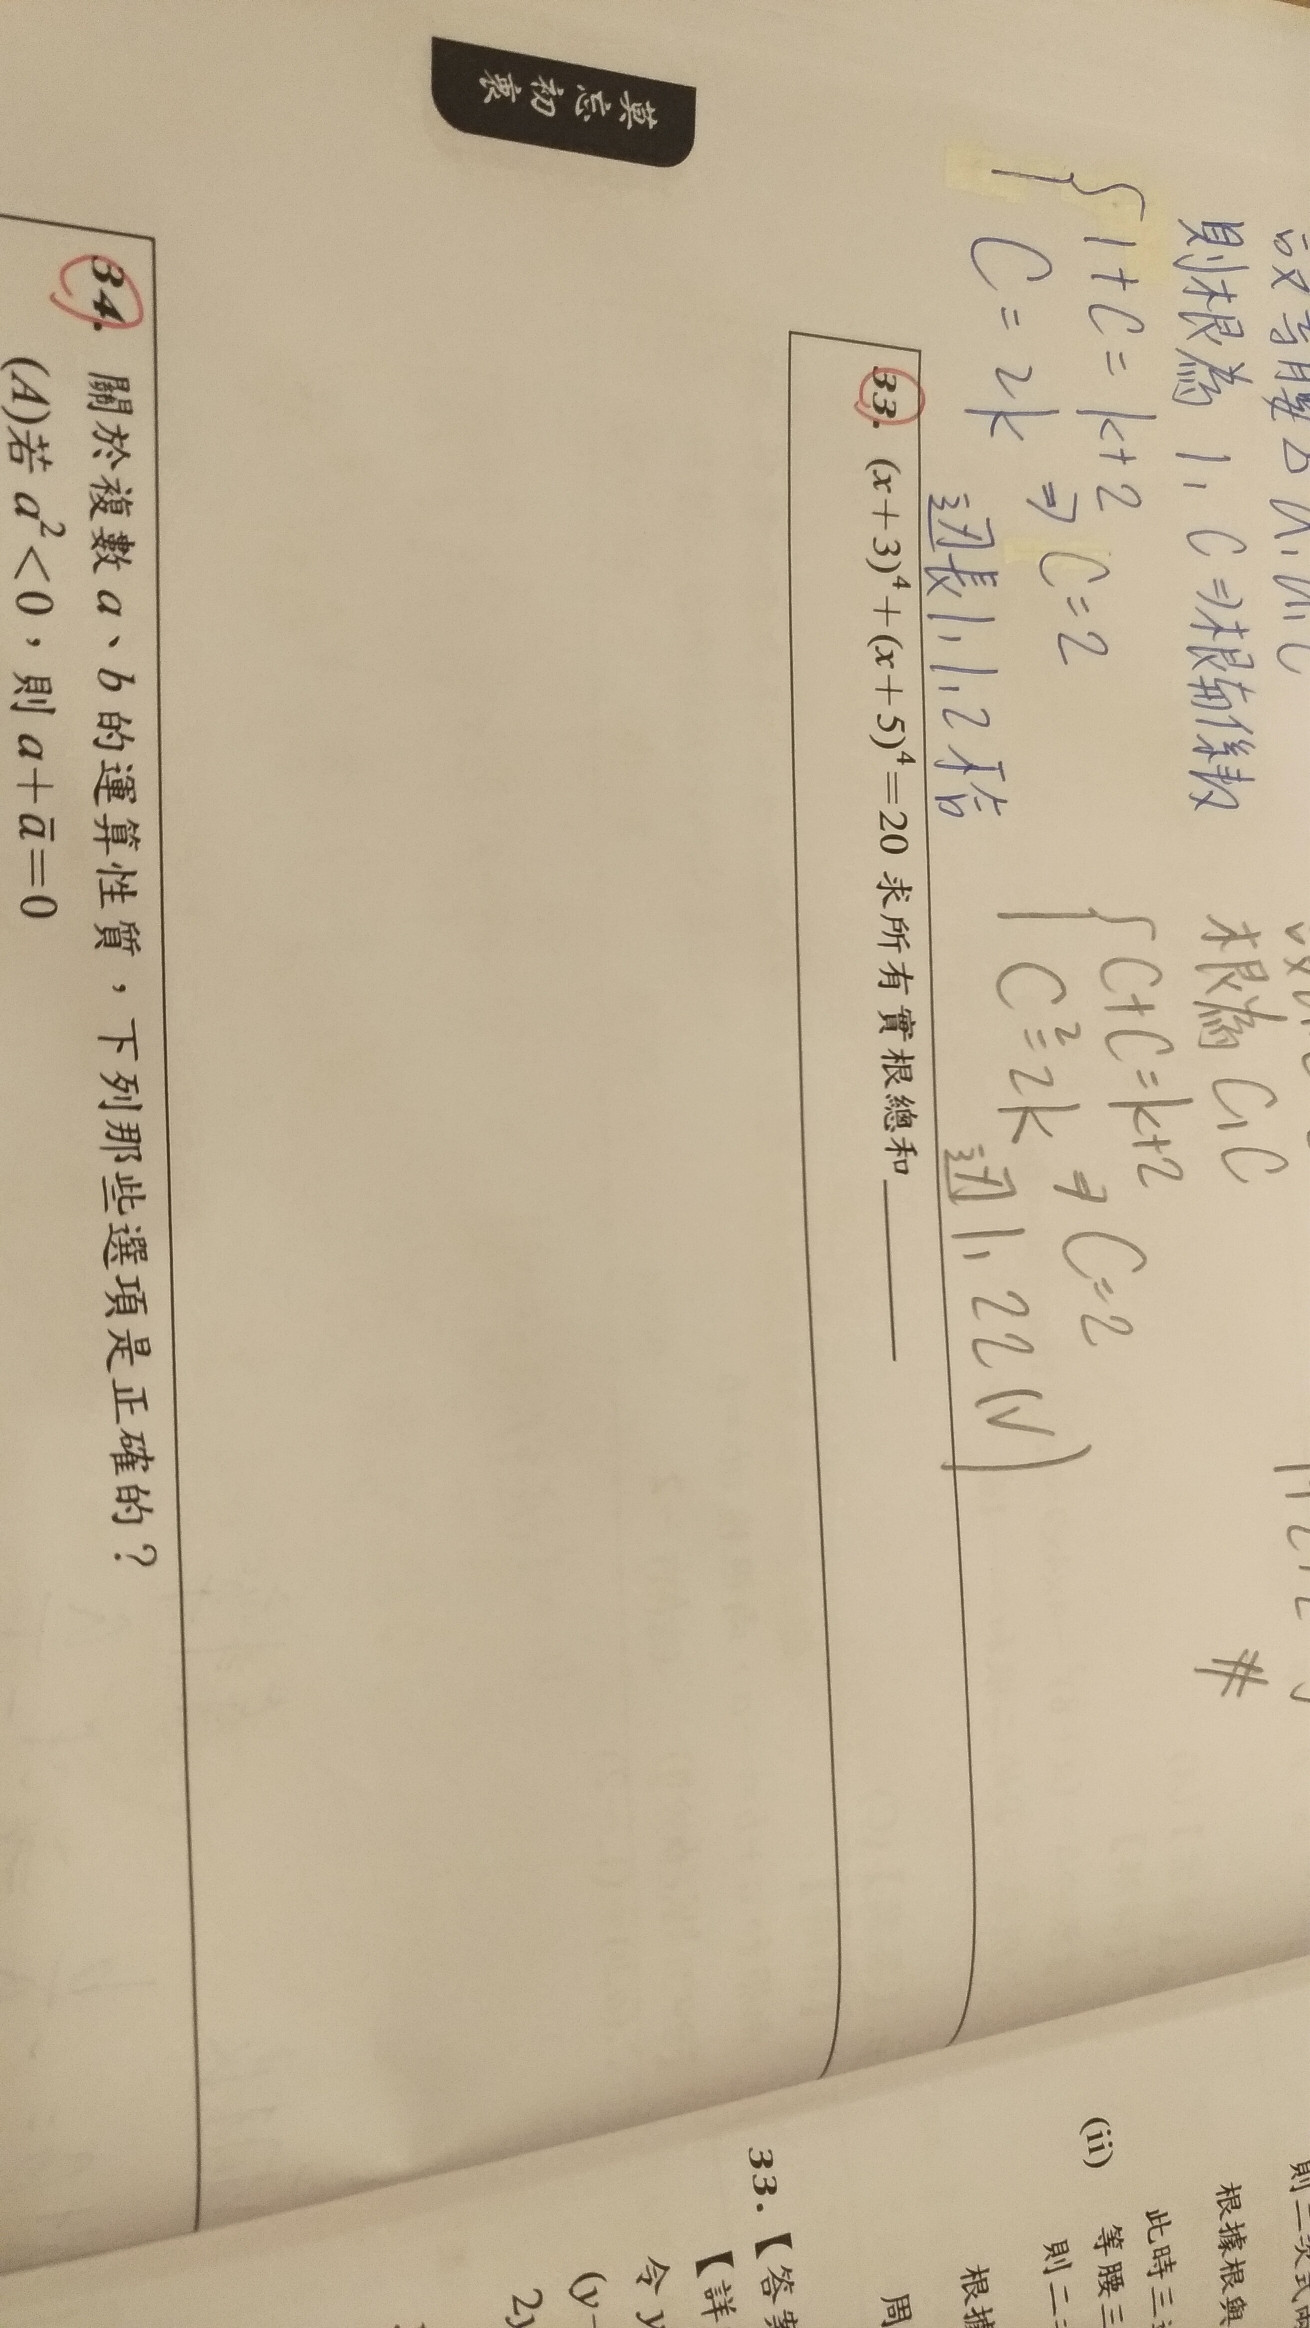 則根為 1, C ⇒根與係數
{ 1+C=k+2
C=2k ⇒ C=2
邊長1,1,2不合
根為 C,C
{ C+C=k+2
C²=2k ⇒ C=2
邊1,22(√)
#
33. (x+3)⁴+(x+5)⁴=20 求所有實根總和______
莫忘初衷
34. 關於複數 a、b 的運算性質，下列那些選項是正確的？
(A)若 a²<0，則 a+ā=0
根據根與
此時三邊
(ii) 等腰三
則二
根據
周
33.【答案
【詳
令 y
(y-
2y